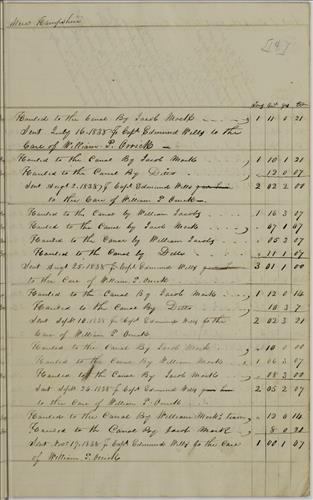 New Hampshire
[197]
Tons Cwt Qrs lbs
Hauled to the Canal By Jacob Mock 1 11 0 21
Sent July 16. 1838 p Capt Edmund Wills to the
Care of William P. Orrick
Hauled to the Canal By Jacob Mock 1 10 1 21
Hauled to the Canal By Ditto 12 0 07
Sent Augt 2. 1838 p Capt Edmund Wills 2 02 2 00
to the Care of William P. Orrick
Hauled to the Canal by William Jacobs 1 16 3 07
Hauled to the Canal by Jacob Mock 07 1 07
Hauled to the Canal by William Jacobs 05 3 07
Hauled to the Canal by Ditto 11 1 07
Sent Augt 25. 1838 p Capt Edmund Wills 3 01 1 00
to the Care of William P. Orrick
Hauled to the Canal By Jacob Mock 1 12 0 14
Hauled to the Canal By Ditto 10 3 7
Sent Sept 12. 1838 p Capt Edmund Wills to the 2 02 3 21
Care of William P. Orrick
Hauled to the Canal By Jacob Mock 10 0 00
Hauled to the Canal by William Mock 1 06 3 07
Hauled to the Canal By Jacob Mock 08 3 00
Sent Sept 26. 1838 p Capt Edmund Wills 2 05 2 07
to the Care of William P. Orrick
Hauled to the Canal By William Mock's Team 12 0 14
Hauled to the Canal By Jacob Mock 8 0 21
Sent Nov. 17. 1838 p Capt Edmund Wills to the Care 1 00 1 07
of William P. Orrick